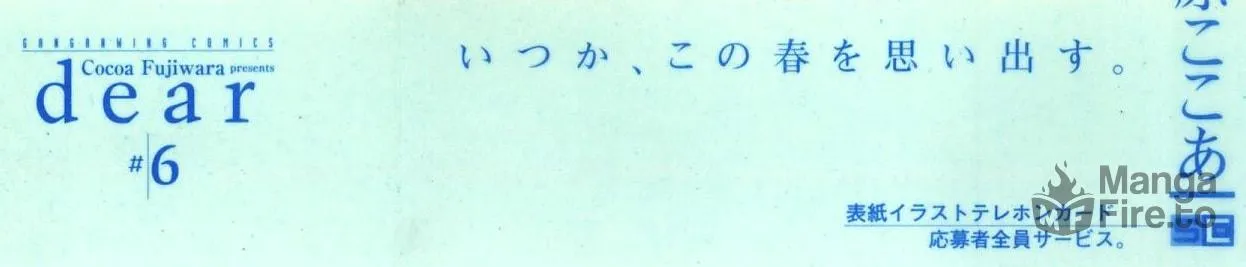 GANGANWING COMICS
Cocoa Fujiwara presents
dear
#6
いつか、この春を思い出す。
原ここあ
表紙イラストテレホンカード
応募者全員サービス。
Manga
Fire.to